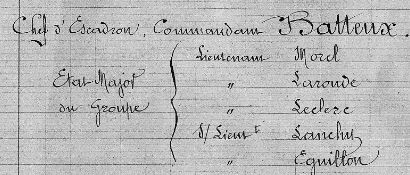 Chef d'Escadron, Commandant Batteux.
Lieutenant Morel
Etat-Major " Laronde
du Groupe " Leclerc
S/Lieutt Lanchy
" Eguillon